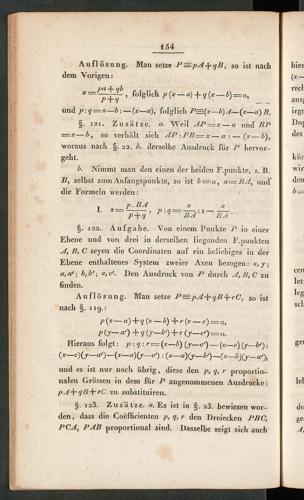 154
Auflösung. Man setze P≡pA+qB, so ist nach
dem Vorigen:
x = (pa+qb)/(p+q), folglich p(x−a)+q(x−b)=0,
und p:q=x−b:−(x−a), folglich P≡(x−b)A−(x−a)B.
§. 121. Zusätze. a. Weil AP=x−a und BP
=x−b, so verhält sich AP:BP=x−a:−(x−b),
woraus nach §. 22. b. derselbe Ausdruck für P hervor-
geht.
b. Nimmt man den einen der beiden F.punkte, z. B.
B, selbst zum Anfangspunkte, so ist b=0, a=BA, und
die Formeln werden:
I. x = p.BA/(p+q), p:q = x/BA : 1 − x/BA.
§. 122. Aufgabe. Von einem Punkte P in einer
Ebene und von drei in derselben liegenden F.punkten
A, B, C seyen die Coordinaten auf ein beliebiges in der
Ebene enthaltenes System zweier Axen bezogen: x, y;
a, a'; b, b'; c, c'. Den Ausdruck von P durch A, B, C zu
finden.
Auflösung. Man setze P≡pA+qB+rC, so ist
nach §. 119.:
p(x−a)+q(x−b)+r(x−c)=0,
p(y−a')+q(y−b')+r(y−c')=0.
Hieraus folgt: p:q:r=(x−b)(y−c')−(x−c)(y−b'):
(x−c)(y−a')−(x−a)(y−c'):(x−a)(y−b')−(x−b)(y−a'),
und es ist nur noch übrig, diese den p, q, r proportio-
nalen Grössen in dem für P angenommenen Ausdrucke:
pA+qB+rC zu substituiren.
§. 123. Zusätze. a. Es ist in §. 23. bewiesen wor-
den, dass die Coëfficienten p, q, r den Dreiecken PBC,
PCA, PAB proportional sind. Dasselbe zeigt sich auch